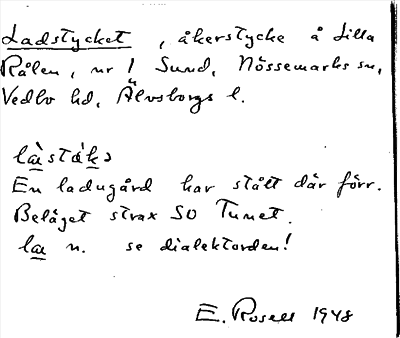 Ladstycket, åkerstycke å Lilla
Rålen, nr 1 Sund, Nössemarks sn,
Vedbo hd, Älvsborgs l.
En ladugård har stått där förr.
Beläget strax SO Tunet.
n. se dialektorden!
E. Rosell 1948